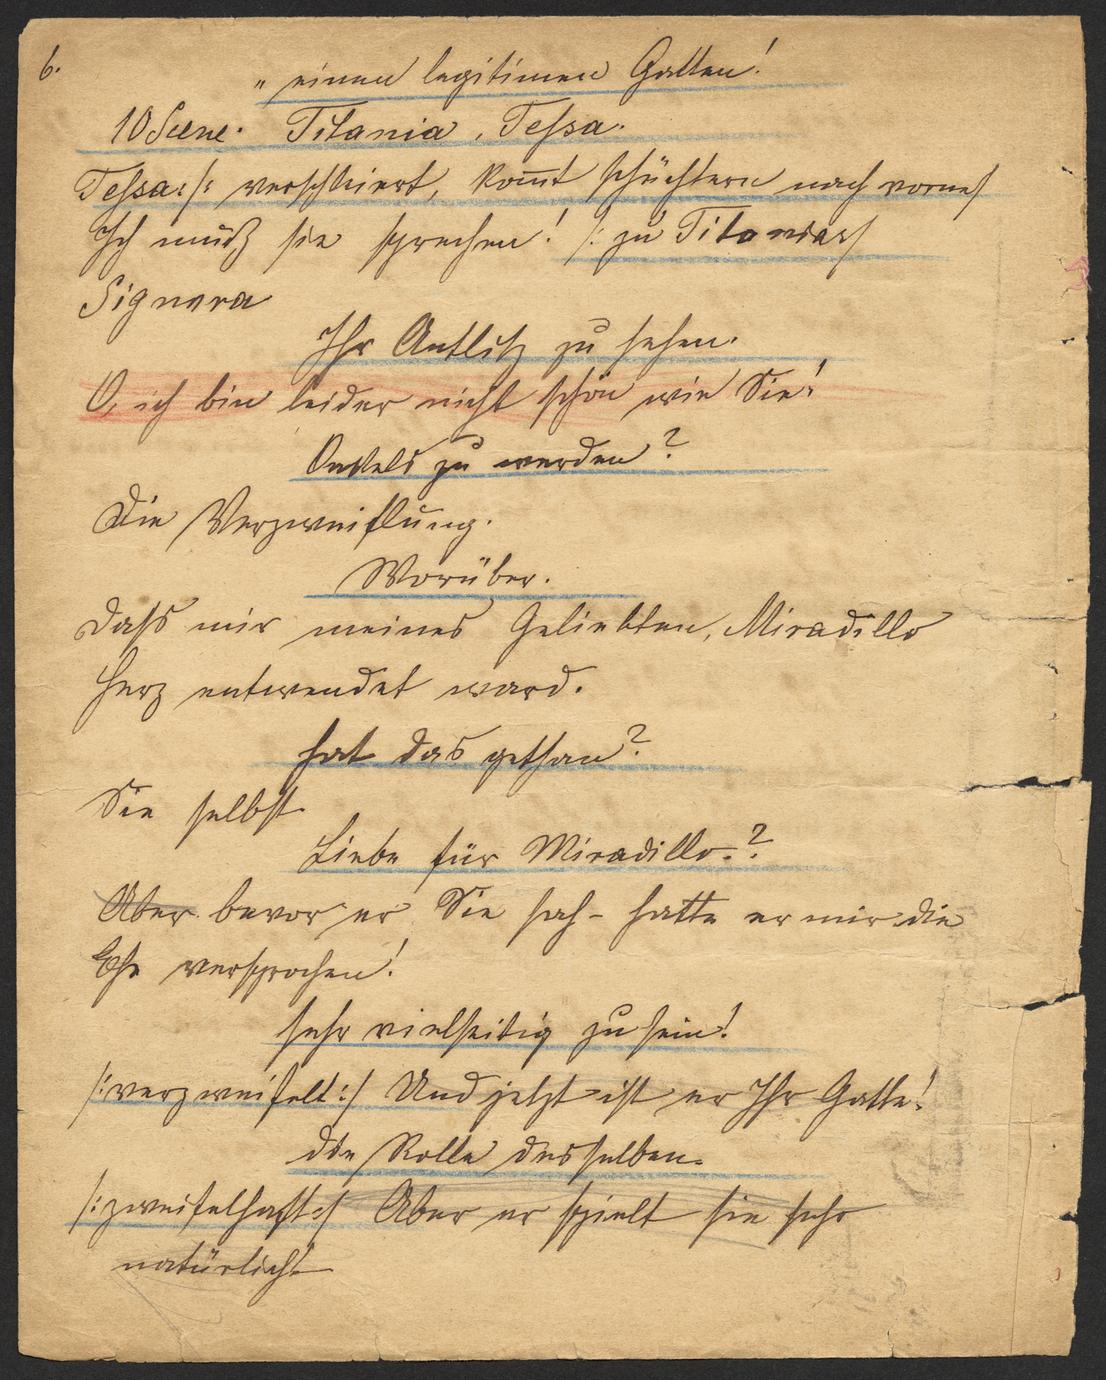 6.
„ einen legitimen Gatten!
10 Scene. Titania, Tessa.
Tessa :/: verschleiert, kom̅t schüchtern nach vorne/
Ich muß sie sprechen! /: zu Titania:/
Signora
Ihr Antlitz zu sehen.
O, ich bin leider nicht schön wie Sie!
Onkels zu werden?
Die Verzweiflung.
Worüber.
Dass mir meines Geliebten, Miradillo
Herz entwendet ward.
hat das gethan?
Sie selbst.
Liebe für Miradillo.?
Aber bevor er Sie sah - hatte er mir die
Ehe versprochen!
sehr vielseitig zu sein!
/: verzweifelt :/ Und jetzt ist er Ihr Gatte!
die Rolle desselben.
/: zweifelhaft :/ Aber er spielt sie sehr
natürlich!